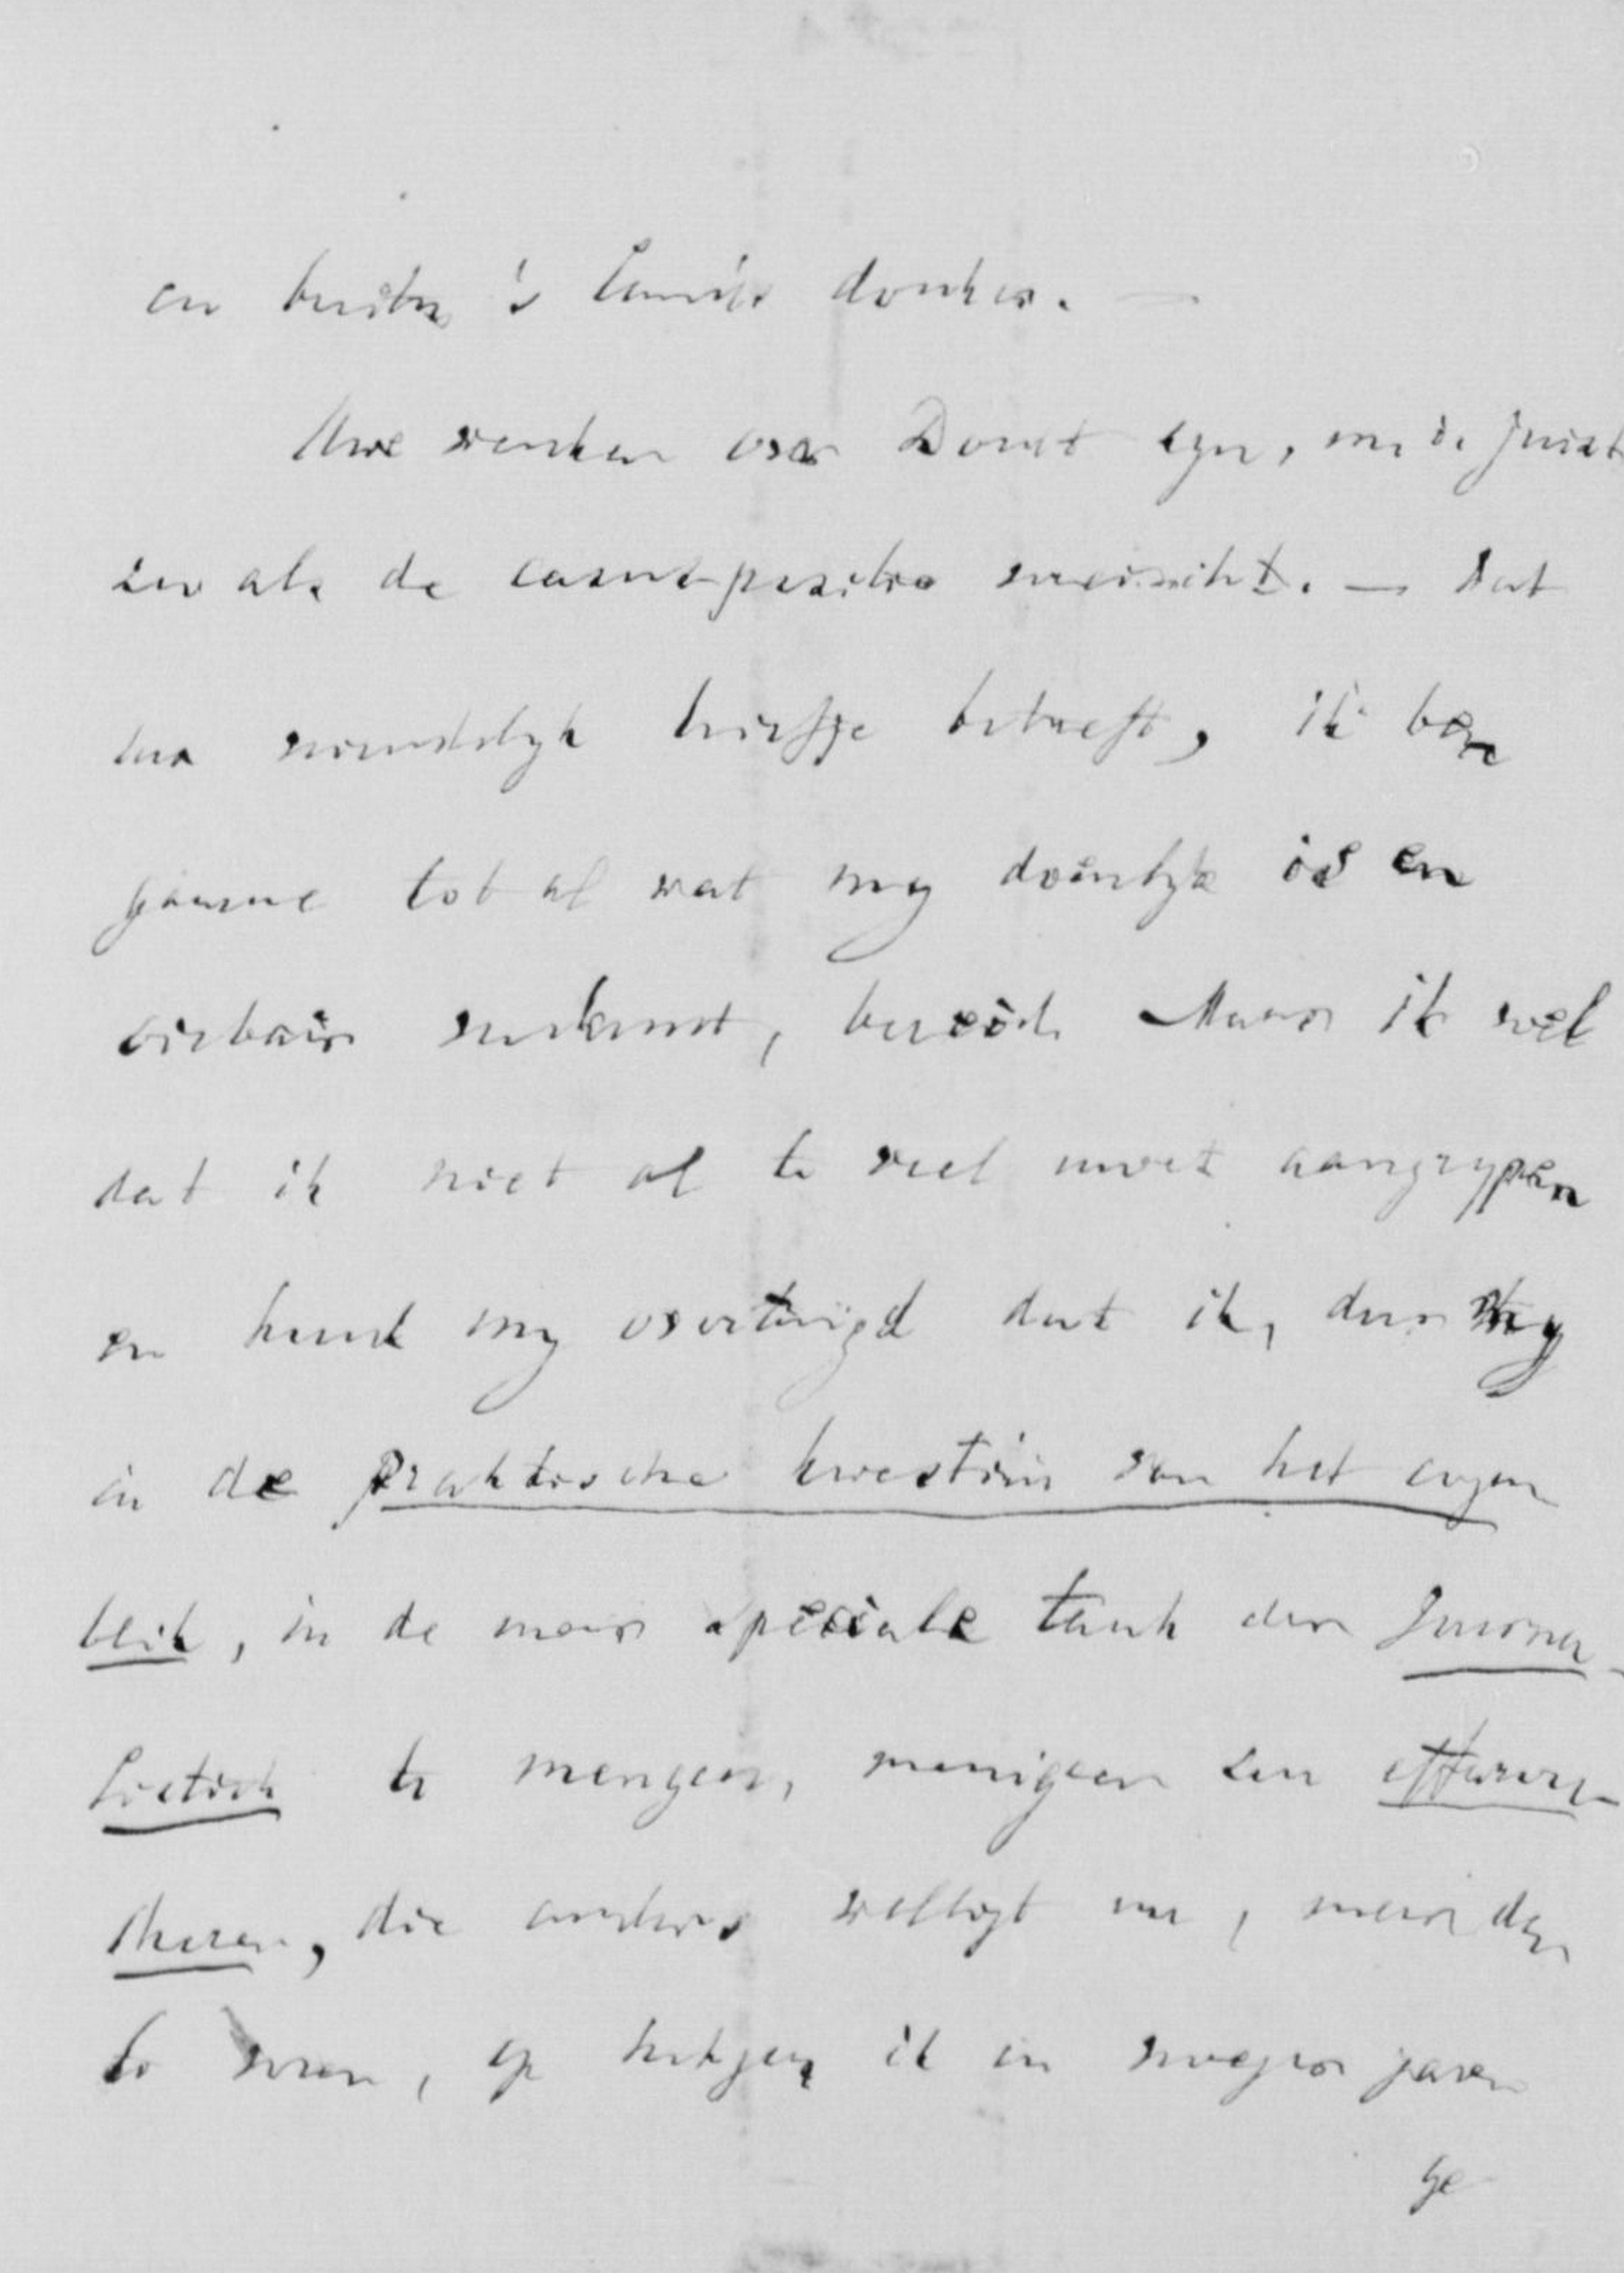 en buiten 's Lands donker. —
Uwe wenken over Dowat zyn, m. i. juist
zoo als de                     . — Wat
uw vriendelyk briefje betreft, ik ben
gaarne tot al wat my doenlyk is en
oirbair           , bereid. Maar ik voel
dat ik niet al te veel moet aangrypen
en houd my overtuigd dat ik, door my
in de praktische kwestiën van het oogen
blik, in de meer speciale taak der Journa-
listiek te mengen, menigeen zou effarou-
cheren, die anders welligt nu, meer dan
te voren, op hetgeen ik in vroeger jaren
ge